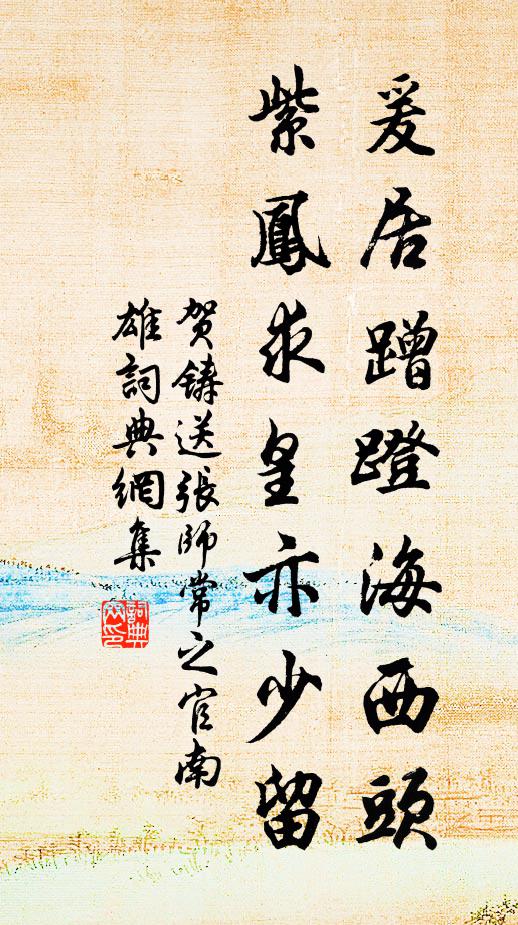 爰居蹭蹬海西頭
紫鳳求皇亦少留
賀鑄送張師常之官南
雄詞典網集
詞典